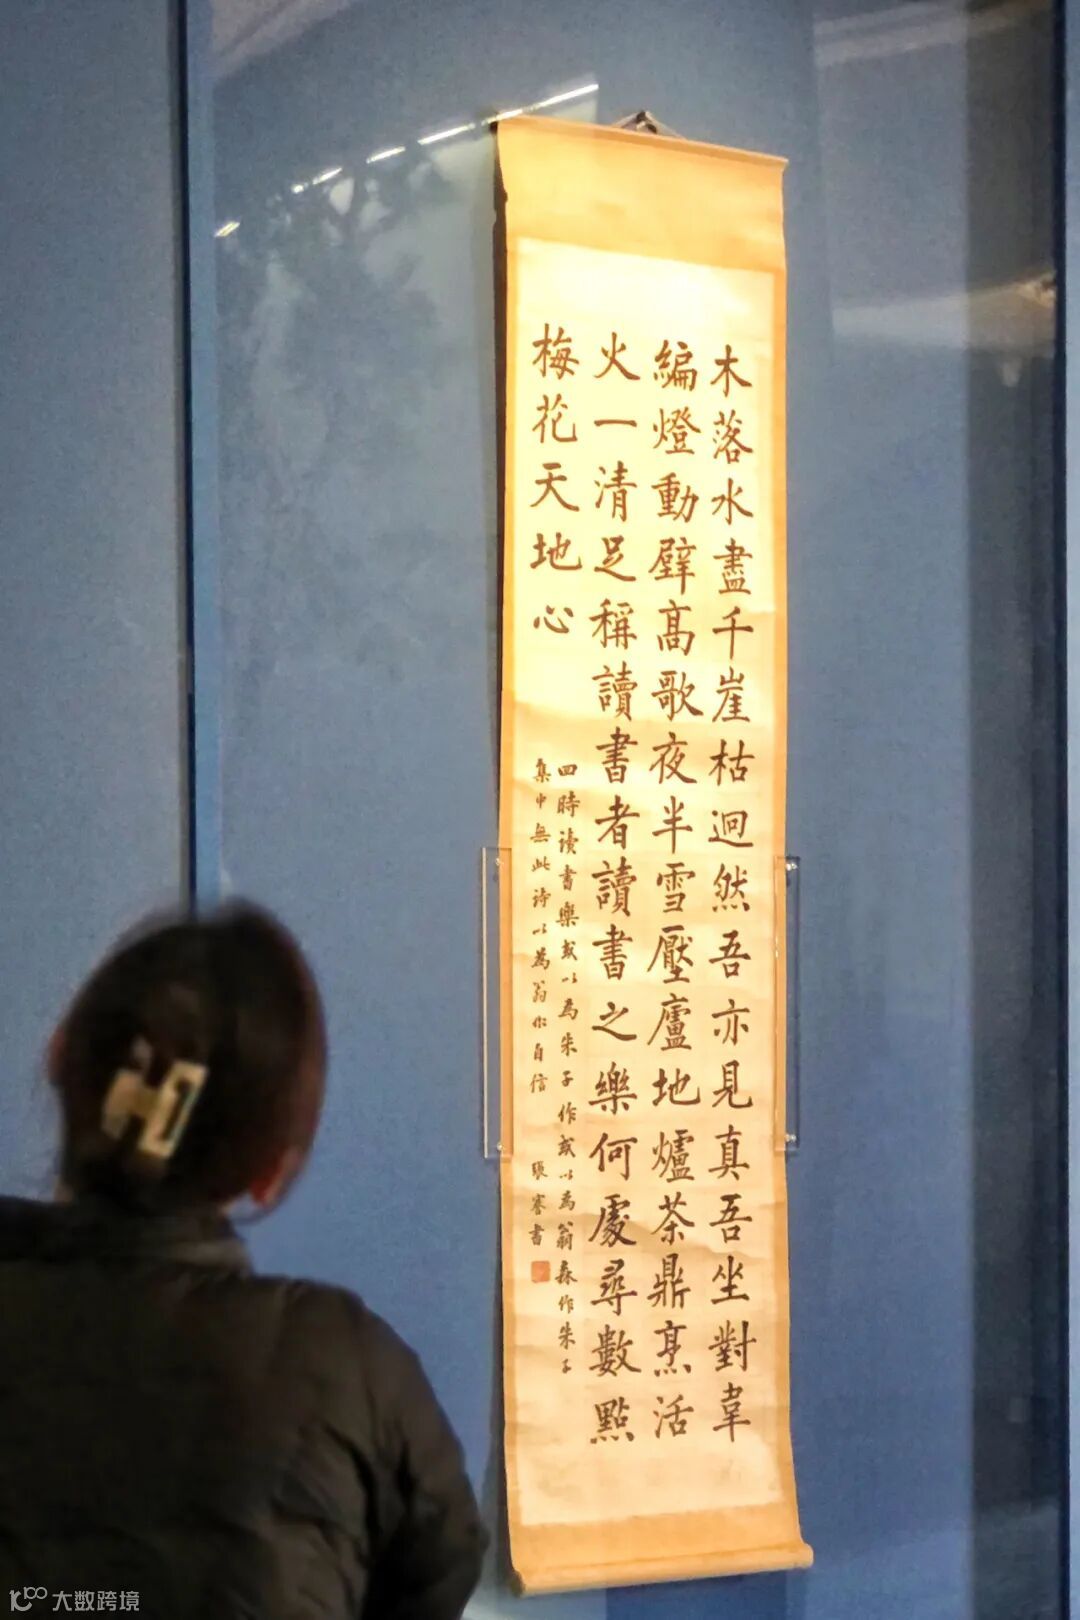 木落水盡千崖枯迥然吾亦見真吾坐對韋
編燈動壁高歌夜半雪壓廬地爐茶鼎烹活
火一清足稱讀書者讀書之樂何處尋數點
梅花天地心
四時讀書樂或以為朱子作或以為翁森作朱子
集中無此詩以為翁作自信
張謇書
大数跨境